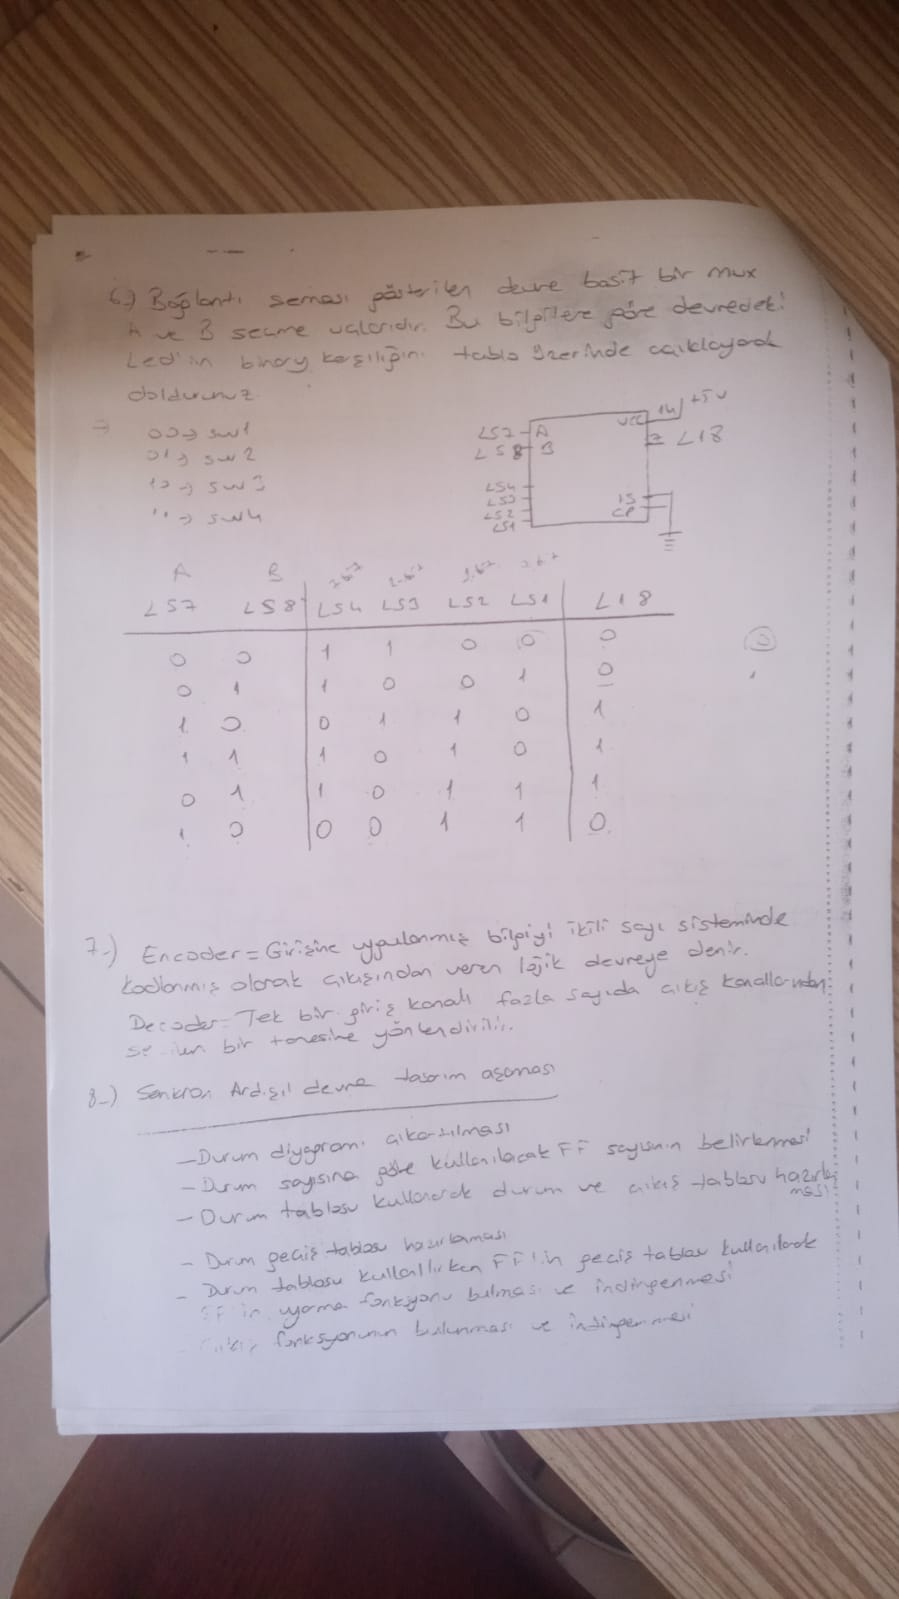 6-) Bağlantı seması gösterilen devre basit bir mux
A ve B secme uclarıdır. Bu bilgilere göre devredeki
Led'in binary karşılığını tablo üzerinde açıklayarak
doldurunuz.
=> 00 -> sw1
01 -> sw2
10 -> sw3
11 -> sw4
LS7 A
LS8 B
LS4
LS3
LS2
LS1
VCC 14 +5V
Z L18
1S
CP
A B
LS7 LS8 LS4 LS3 LS2 LS1 L18
0 0 1 1 0 0 0
0 1 1 0 0 1 0
1 0 0 1 1 0 1
1 1 1 0 1 0 1
0 1 1 0 1 1 1
1 0 0 0 1 1 0
7-) Encoder = Girişine uygulanmış bilgiyi ikili sayı sisteminde
kodlanmış olarak çıkışından veren lojik devreye denir.
Decoder = Tek bir giriş kanalı fazla sayıda çıkış kanallarından
bir tanesine yönlendirilir.
8-) Senkron Ardışıl devre tasarım aşaması
- Durum diyagramı çıkartılması
- Durum sayısına göre kullanılacak FF sayısının belirlenmesi
- Durum tablosu kullanarak durum ve çıkış tablosu hazırlanması
- Durum geçiş tablosu hazırlanması
- Durum tablosu FF'in geçis tablosu kullanılarak
FF'in uyarma fonkyonu bulması ve indirgenmesi
fonksyonunun bulunması ve indirgenmesi